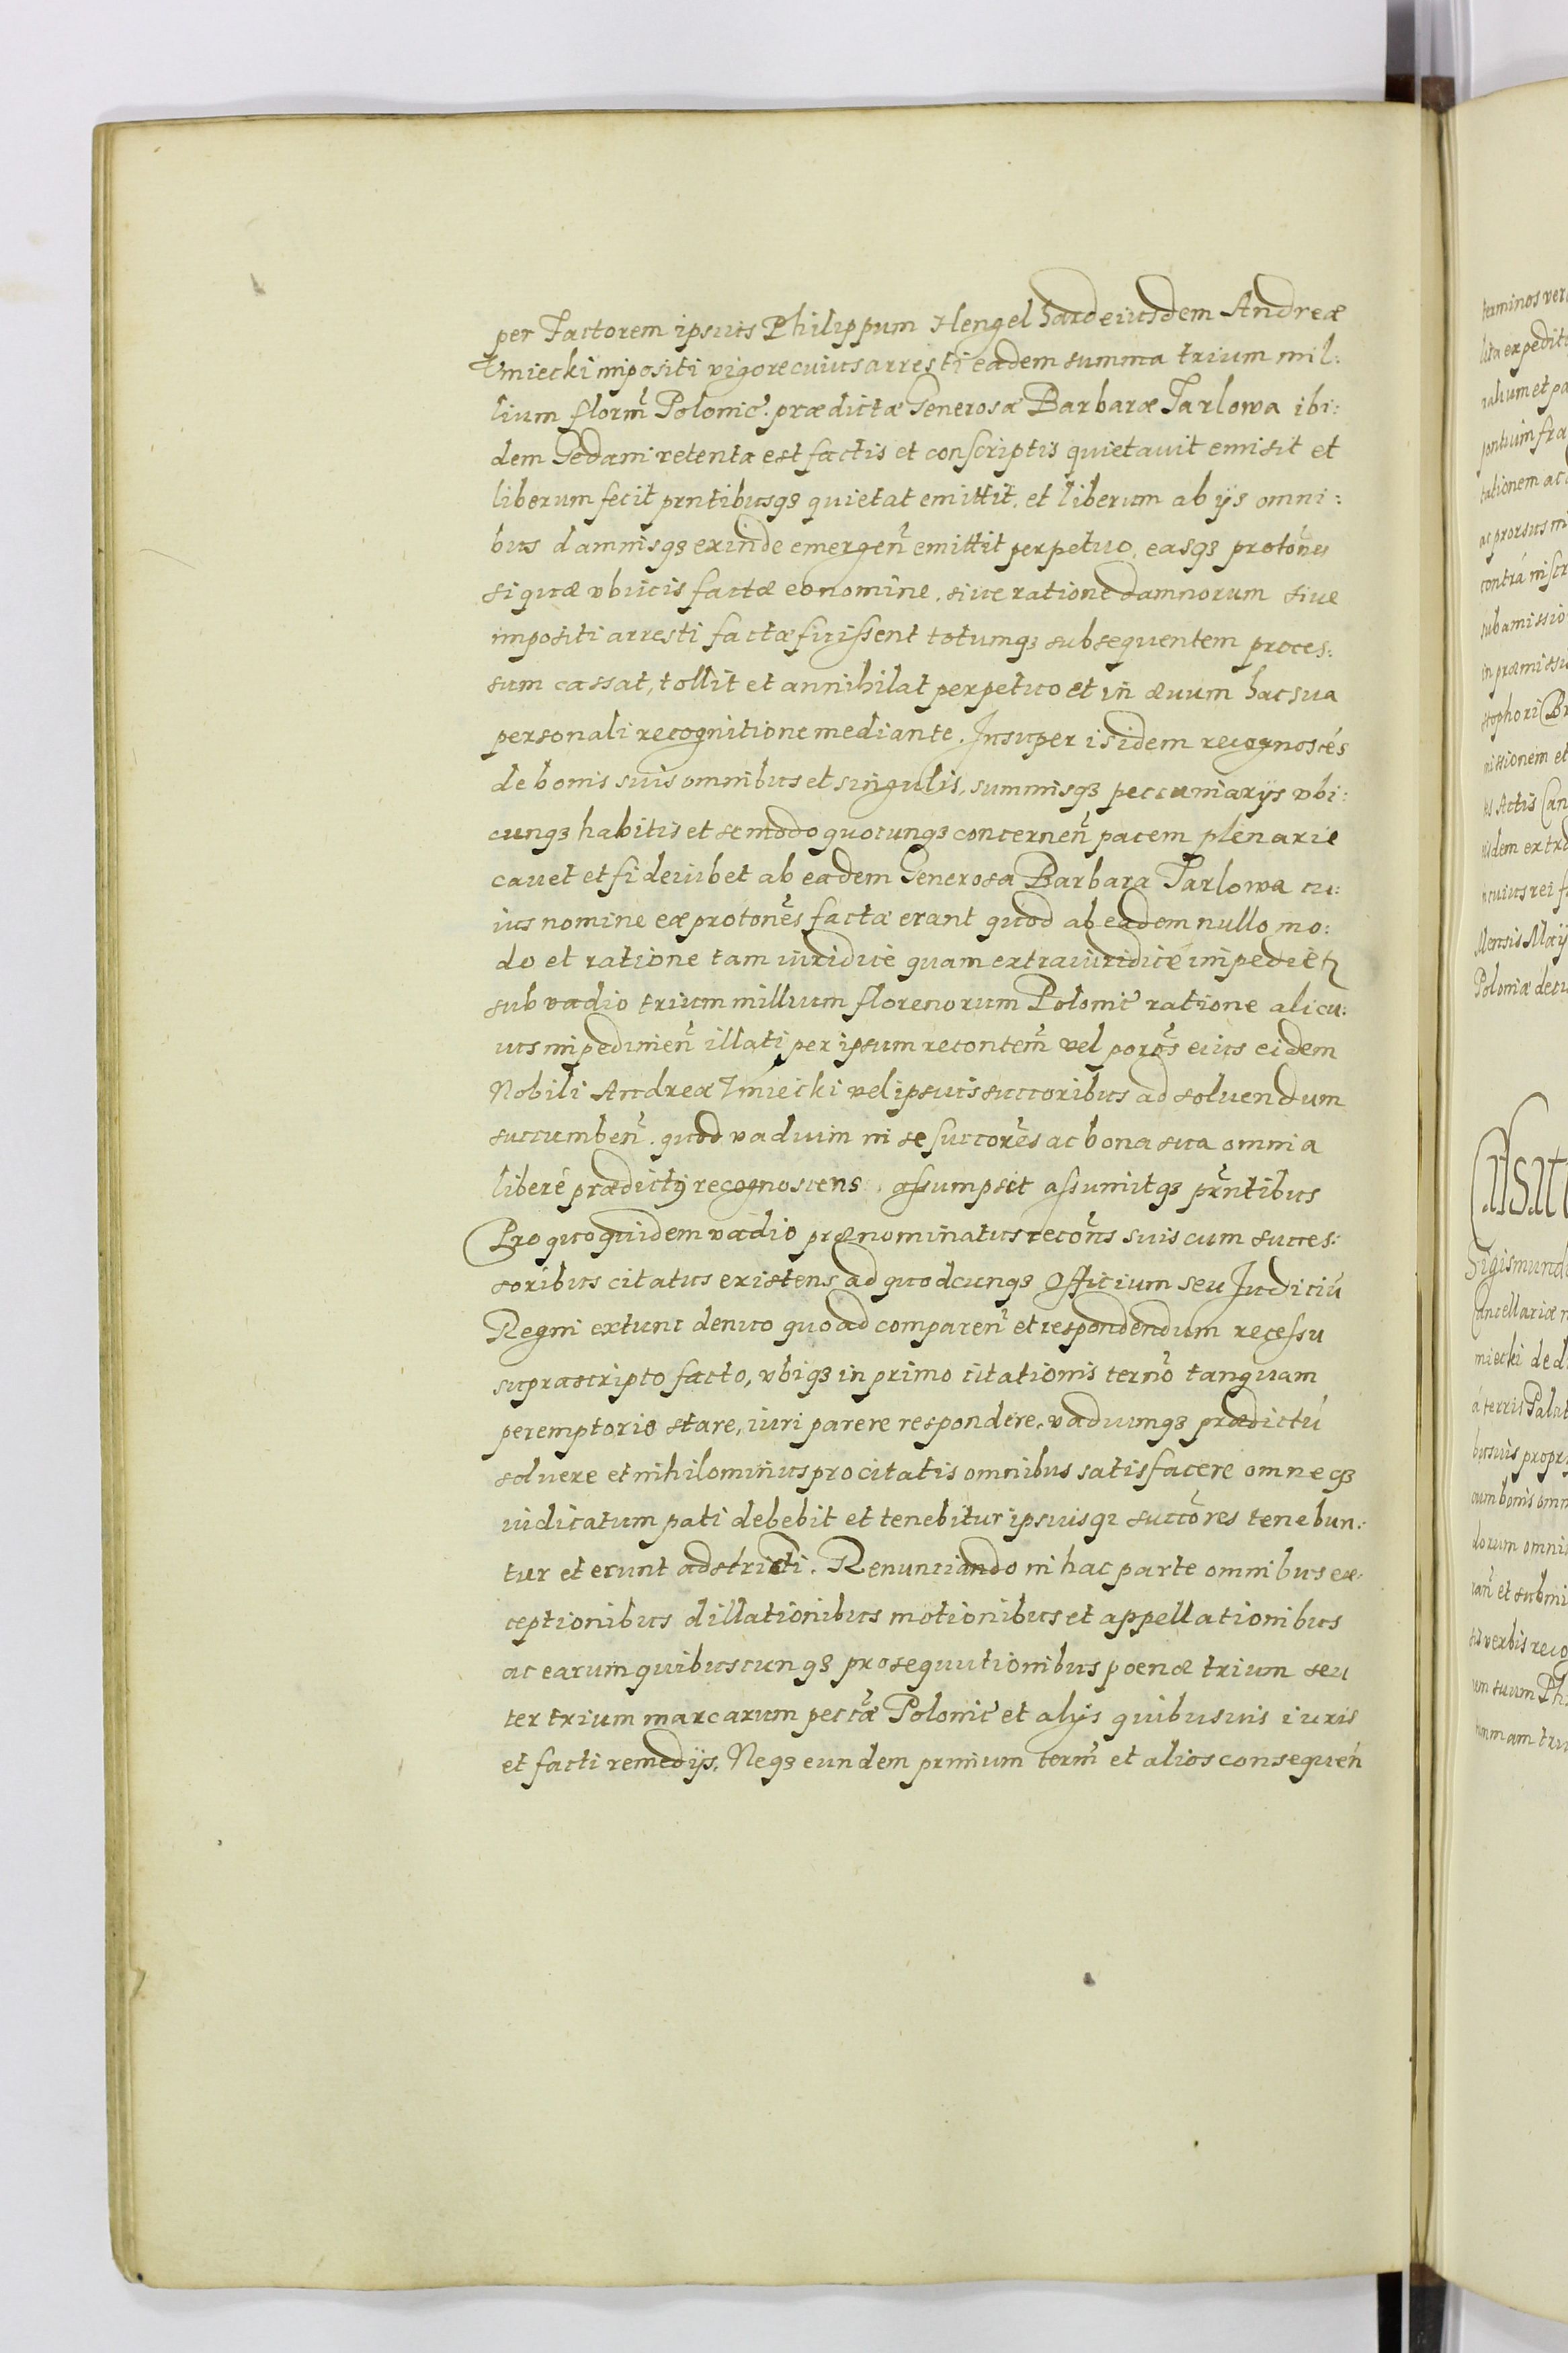 per Factorem ipsius Philippum Hengel hard eiusdem Andreæ
Zmiecki impositi vigore cuius arresti eadem summa trium mil:
lium florm̃ Polonic̃. prædictæ Generosæ Barbaræ Tarlowa ibi:
dem Gedani retenta est factis et conscriptis quietavit emisit et
liberum fecit prntibusq3 quietat emittit, et liberum ab ijs omni:
bus damnisq3 exinde emergen̄ emittit perpetuo, easq3 protõnes
si quæ vbiuis factæ eo nomine, siue ratione damnorum siue
impositi arresti factæ fuissent totumq3 subsequentem proces:
sum cassat, tollit et annihilat perpetuo et in æuum hac sua
personali recognitione mediante. Insuper isidem recognoscēs
de bonis suis omnibus et singulis, summisq3 peccuniarijs vbi:
cunq3 habitis et se modo quocunq3 concernen̄ pacem plenarie
cauet et fideiubet ab eadem Generosa Barbara Tarlowa cu:
ius nomine eæ protonẽs factæ erant quod ab eadem nullo mo:
do et ratione tam iuridicè quam extraiuridicè impediet̃
sub vadio trium millium florenorum Polonic̃ ratione alicu:
ius impedimen̄ illati per ipsum recontem̃ vel porõs eius eidem
Nobili Andreæ Zmiecki vel ipsius succoribus ad soluendum
succumben̄. quod vadium in se succorẽs ac bona sua omnia
liberè prædictꝰ recognoscens, assumpsit assumitq3 pr̃ntibus
Pro quo quidem vadio prænominatus recõns suis cum succes:
soribus citatus existens ad quodcunq3 Officium seu Iudiciū
Regni extunc denuo quoad comparen̄ et respondendum recessu
suprascripto facto, vbiq3 in primo citationis terno̅ tanquam
peremptorio stare, iuri parere respondere, vadiumq3 prædictū
soluere et nihilominus pro citatis omnibus satisfacere omneq3
iudicatum pati debebit et tenebitur ipsiusq3 succõres tenebun:
tur et erunt adstricti. Renunciando in hac parte omnibus ex:
ceptionibus dillationibus motionibus et appellationibus
ac earum quibuscunq3 prosequutionibus poenæ trium seu
ter trium marcarum peccæ̃ Polonic̃ et alijs quibusuis iuris
et facti remedijs. Neq3 eundem primum term̃ et alios consequen̄